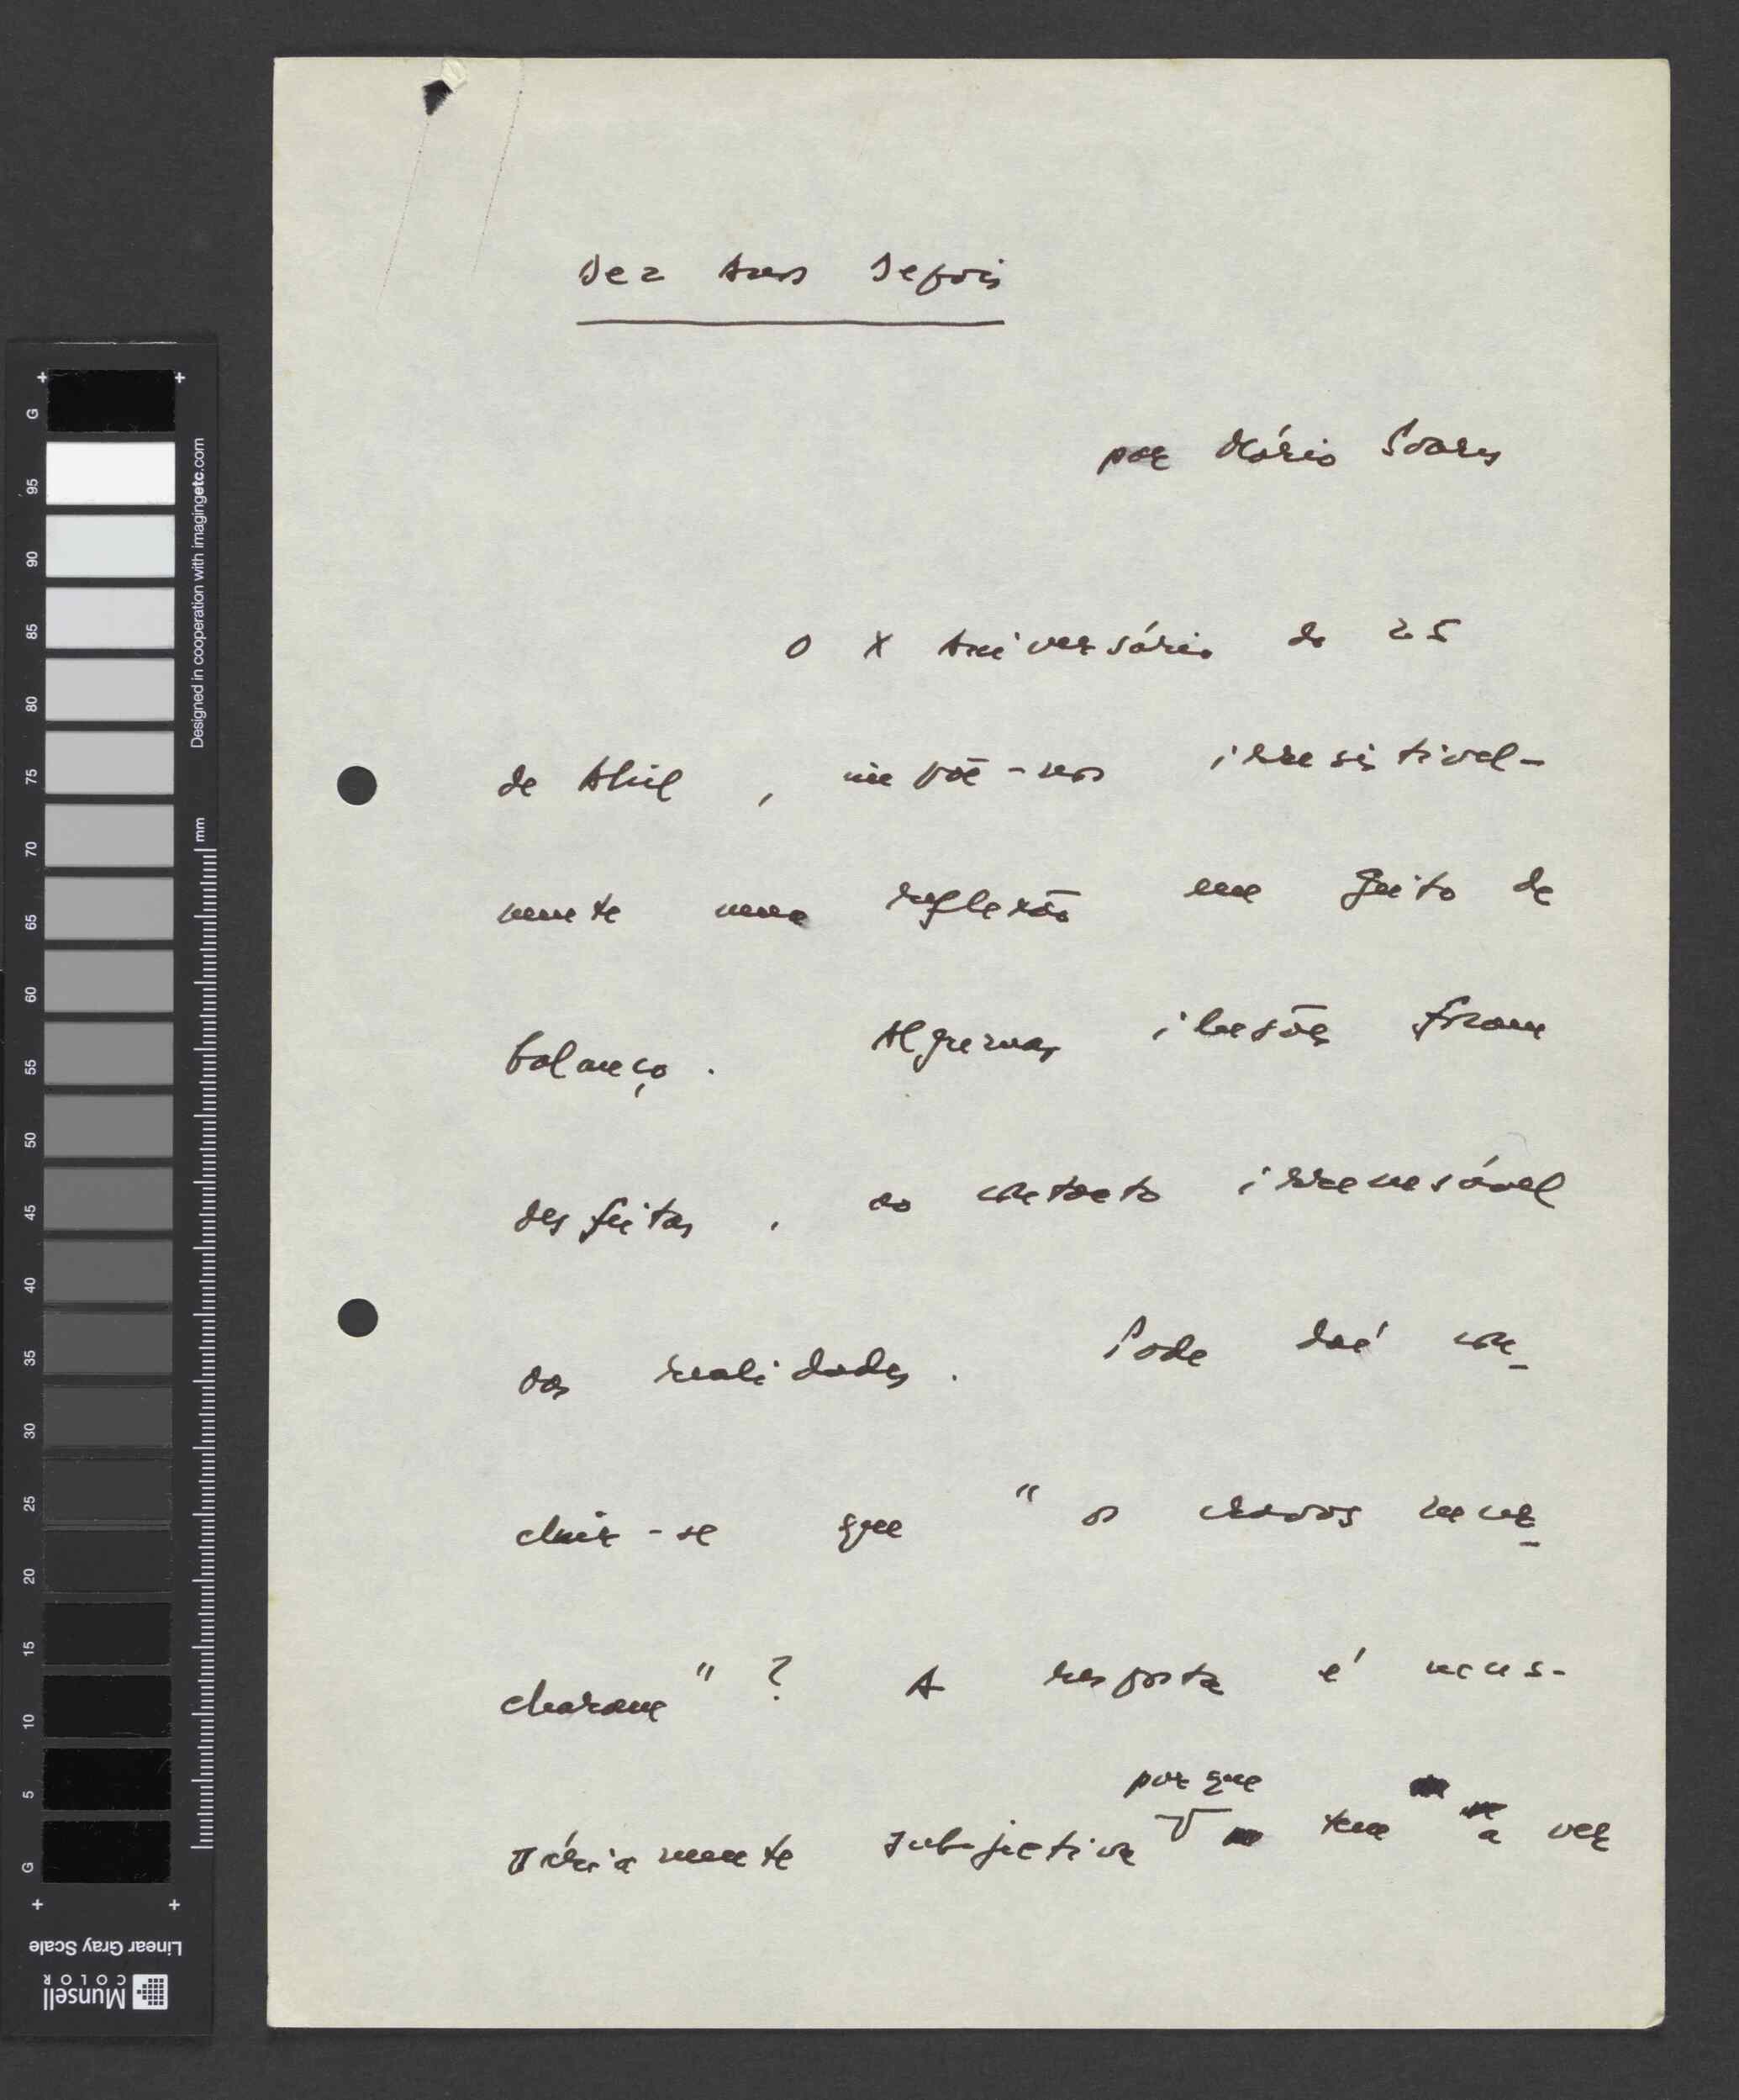 Dez Anos Depois
por Mário Soares
O X Aniversário do 25
de Abril, impõe-nos irresistivel-
mente uma reflexão em jeito de
balanço. Algumas ilusões foram
desfeitas, ao contacto irrecusável
das realidades. Pode daí con-
cluir-se que "os cravos mur-
charam"? A resposta é neces-
porque
sáriamente subjectiva tem a ver
G 95 90 85 80 75 70 65 60 55 50 45 40 35 30 25 20 15 10 5 G
Designed in cooperation with imagingetc.com
mm
Linear Gray Scale
Munsell
COLOR